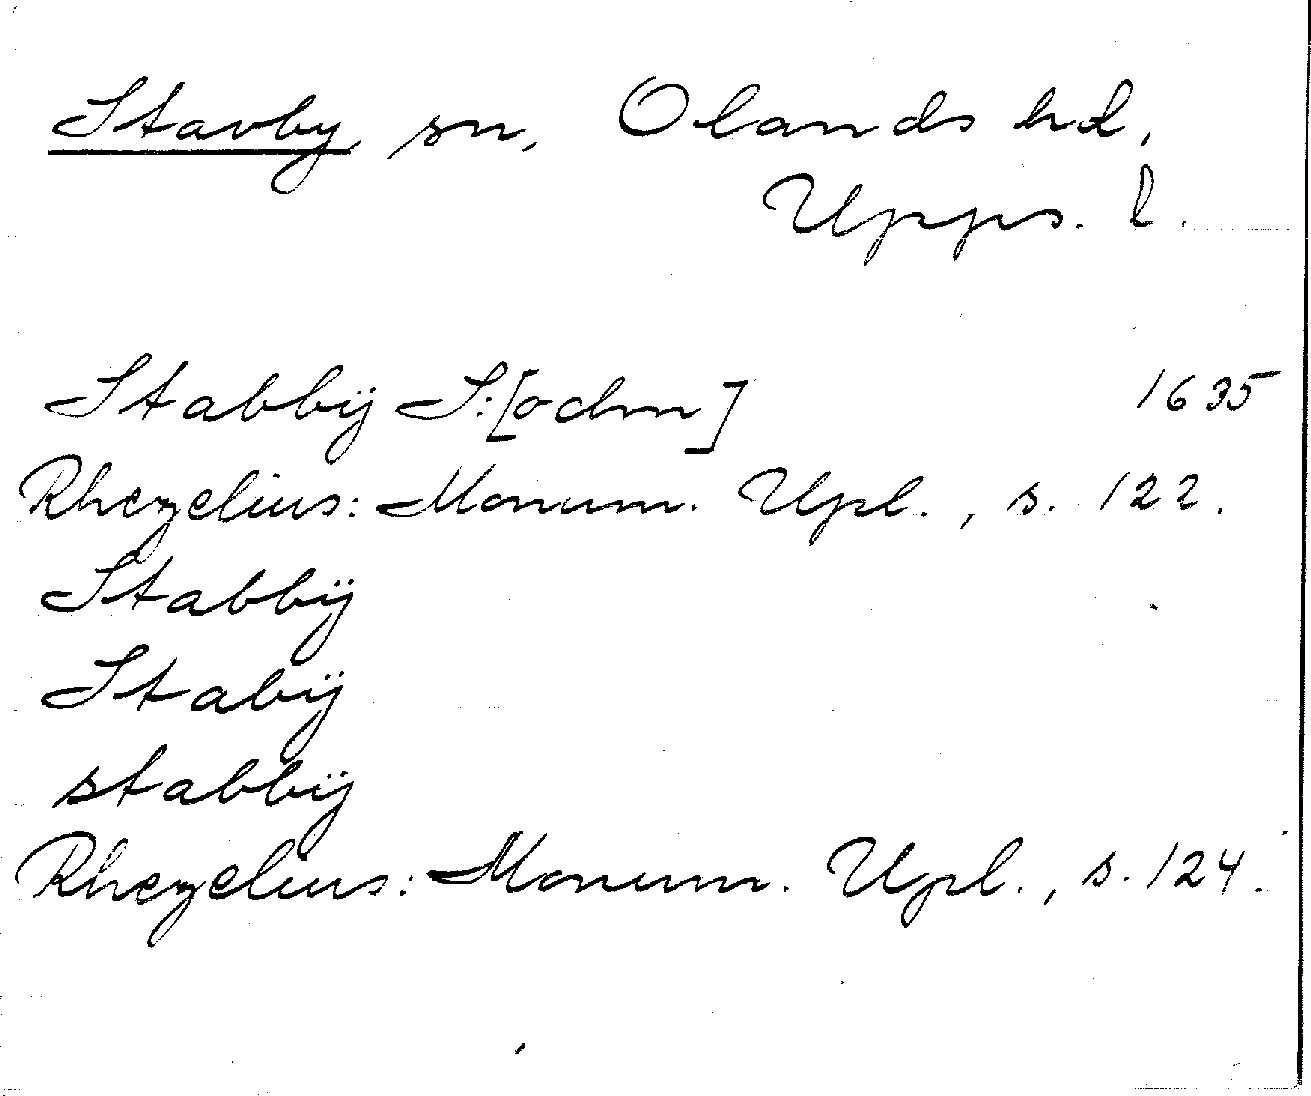 Stavby sn, Olands hd,
Upps. l.
Stabbÿ S:[ockn] 1635
Rhezelius: Monum. Upl., s. 122.
Stabbÿ
Stabÿ
stabbÿ
Rhezelius: Monum. Upl., s. 124.